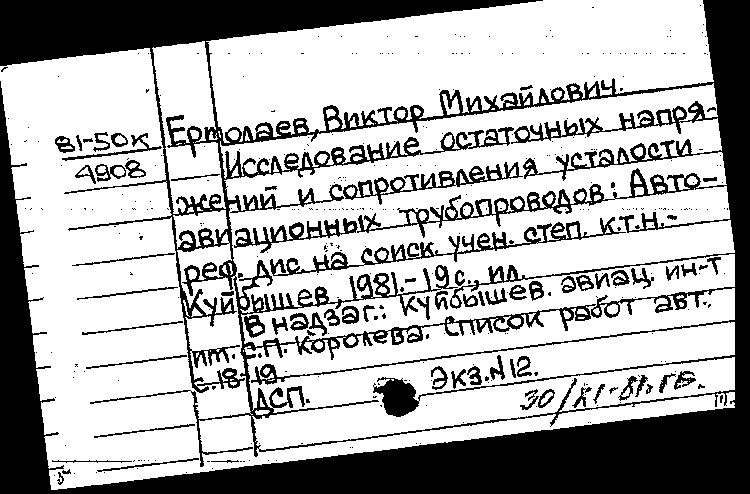 81-50к
4908
Ермолаев, Виктор Михайлович.
Исследование остаточных напря-
жений и сопротивления усталости
авиационных трубопроводов: Авто-
реф. дис. на соиск. учен. степ. к.т.н.-
Куйбышев, 1981.-19с., ил.
В надзаг.: Куйбышев. авиац. ин-т
им. С.П. Королева. Список работ авт.:
с.18-19.
ДСП.
Экз.N12.
30/XI-81.